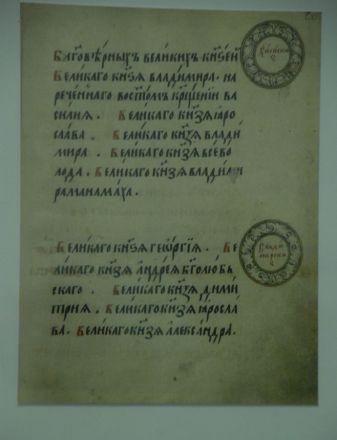 Благовѣрныхъ великихъ кн҃зей
Великаго кн҃зѧ владимира. на
реченнаго во ст҃омъ кр҃щенїи ва
силиѧ. Великаго кн҃зѧ ꙗро
слава. Великаго кн҃зѧ влади
мира. Великаго кн҃зѧ всево
лода. Великаго кн҃зѧ влади
ра манамаха.
Великаго кн҃зѧ геѡргїѧ. Ве
ликаго кн҃зѧ андреѧ б҃голюбъ
скаго. Великаго кн҃зѧ дими
триѧ. Великаго кн҃зѧ ꙗросла
ва. Великаго кн҃зѧ алеѯандра.